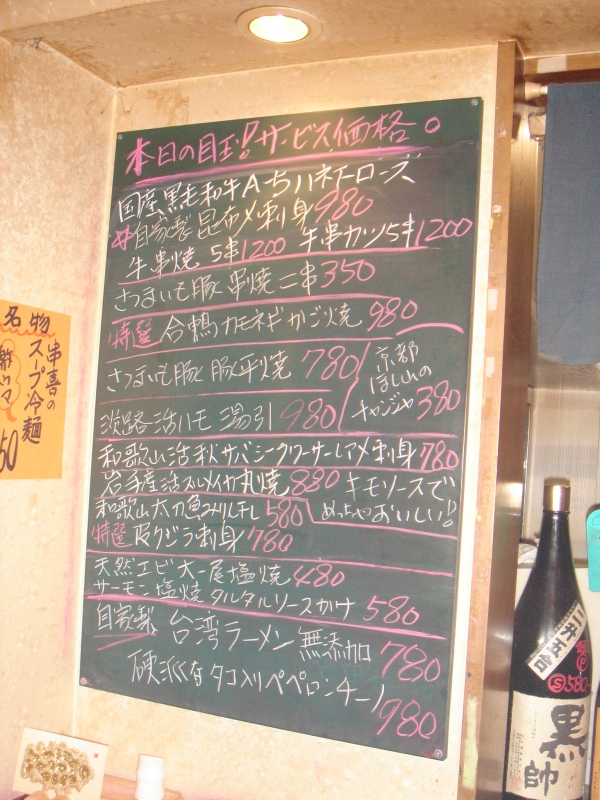 本日の目玉!サービス価格。
国産、黒毛和牛A-5ハネトローズ
自家製昆布〆刺身980
牛串焼 5串1200 牛串カツ5串1200
さつまいも豚串焼二串350
特選 合鴨カモネギかご焼 980
さつまいも豚 豚平焼 780
京都
ほし山の
チャンジャ380
淡路活ハモ湯引 980
和歌山活〆サバシークワーサーレアメ刺身780
岩手産活スルメイカ丸焼880
キモソースで
めっちゃおいしい!
和歌山太刀魚みりん干し580
特選 皮クジラ刺身780
天然エビ大一尾塩焼480
サーモン塩焼タルタルソースかけ580
自家製 台湾ラーメン無添加780
硬派なタコ入りペペロンチーノ
980
名物
串喜の
スープ冷麺
50
二升五合
580
黒帥